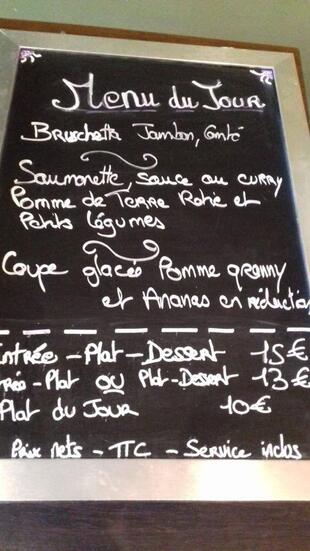 Menu du Jour
Bruschetta Jambon, Comté
Saumonette, sauce au curry
Pomme de Terre Rotie et
Petits légumes
Coupe glacée Pomme granny
et Ananas en réduction
Entrée - Plat - Dessert 15€
trée - Plat ou Plat - Dessert 13€
Plat du Jour 10€
Prix nets - TTC - Service inclus